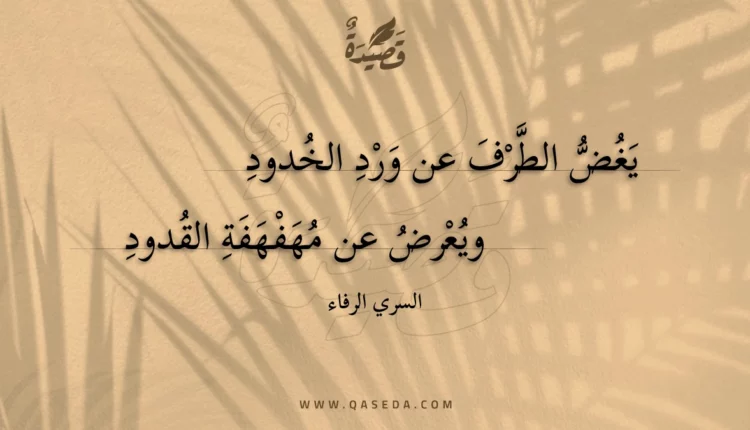 قَصِيْدَةٌ
يَغُضُّ الطَّرْفَ عن وَرْدِ الخُدودِ
ويُعْرضُ عن مُهَفْهَفَةِ القُدودِ
السري الرفاء
WWW.QASEDA.COM